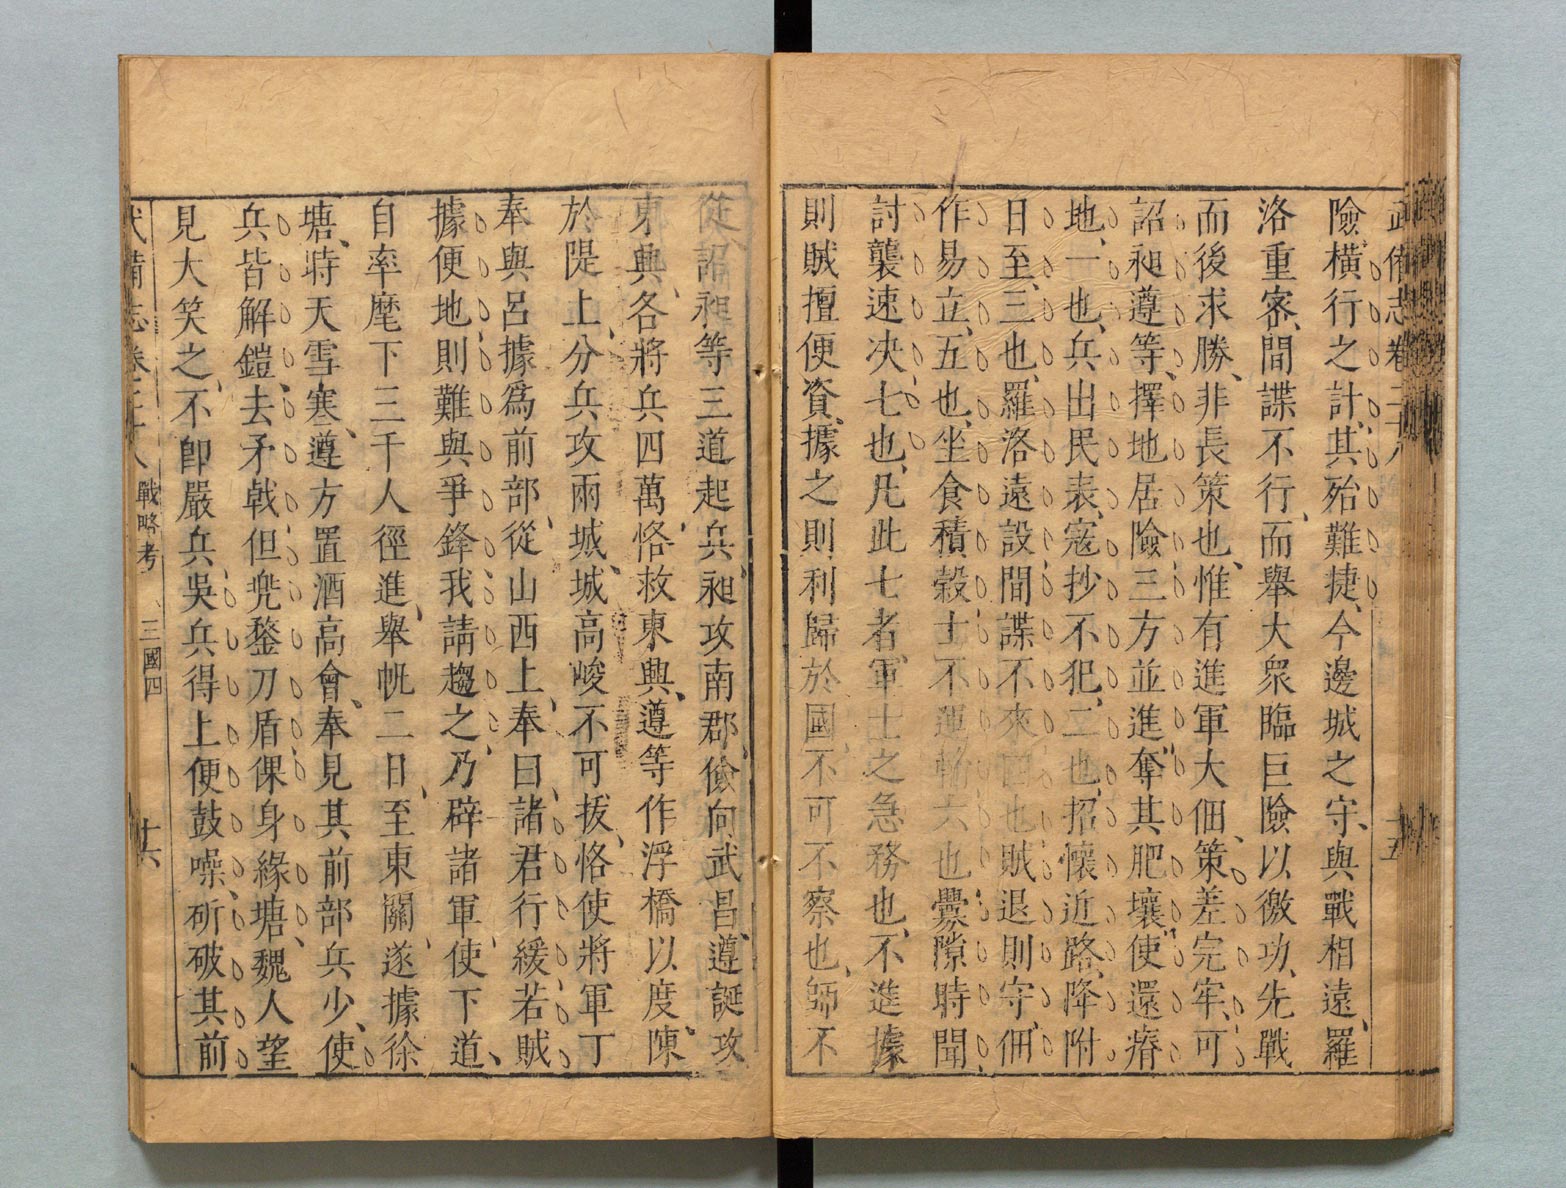 武備志卷二十八
險、橫行之計、其殆難捷、今邊城之守、與戰相遠、羅
洛重密、間諜不行、而舉大衆臨巨險以徼功、先戰
而後求勝、非長策也、惟有進軍大佃、策差完牢、可
詔昶遵等、擇地居險、三方並進、奪其肥壤、使還瘠
地、一也、兵出民表、寇抄不犯、二也、招懷近路、降附
日至、三也、羅洛遠設、間諜不來、四也、賊退則守、佃
作易立、五也、坐食積穀、士不運輸、六也、釁隙時聞、
討襲速决、七也、凡此七者、軍士之急務也、不進據
則賊擅便資、據之則利歸於國、不可不察也、師不
從、詔昶等三道起兵、昶攻南郡、儉向武昌、遵誕攻
東興、各將兵四萬、恪救東興、遵等作浮橋以度、陳
於隄上、分兵攻兩城、城高峻不可拔、恪使將軍丁
奉與呂據爲前部、從山西上、奉曰、諸君行緩、若賊
據便地、則難與爭鋒、我請趨之、乃辟諸軍、使下道、
自率麾下三千人徑進、舉帆二日、至東關、遂據徐
塘、時天雪寒、遵方置酒高會、奉見其前部兵少、使
兵皆解鎧去矛戟、但兜鍪刀盾、倮身緣塘、魏人望
見大笑之、不卽嚴兵、吳兵得上、便鼓噪、斫破其前
武備志卷二十八 戰略考 三國四 廿六